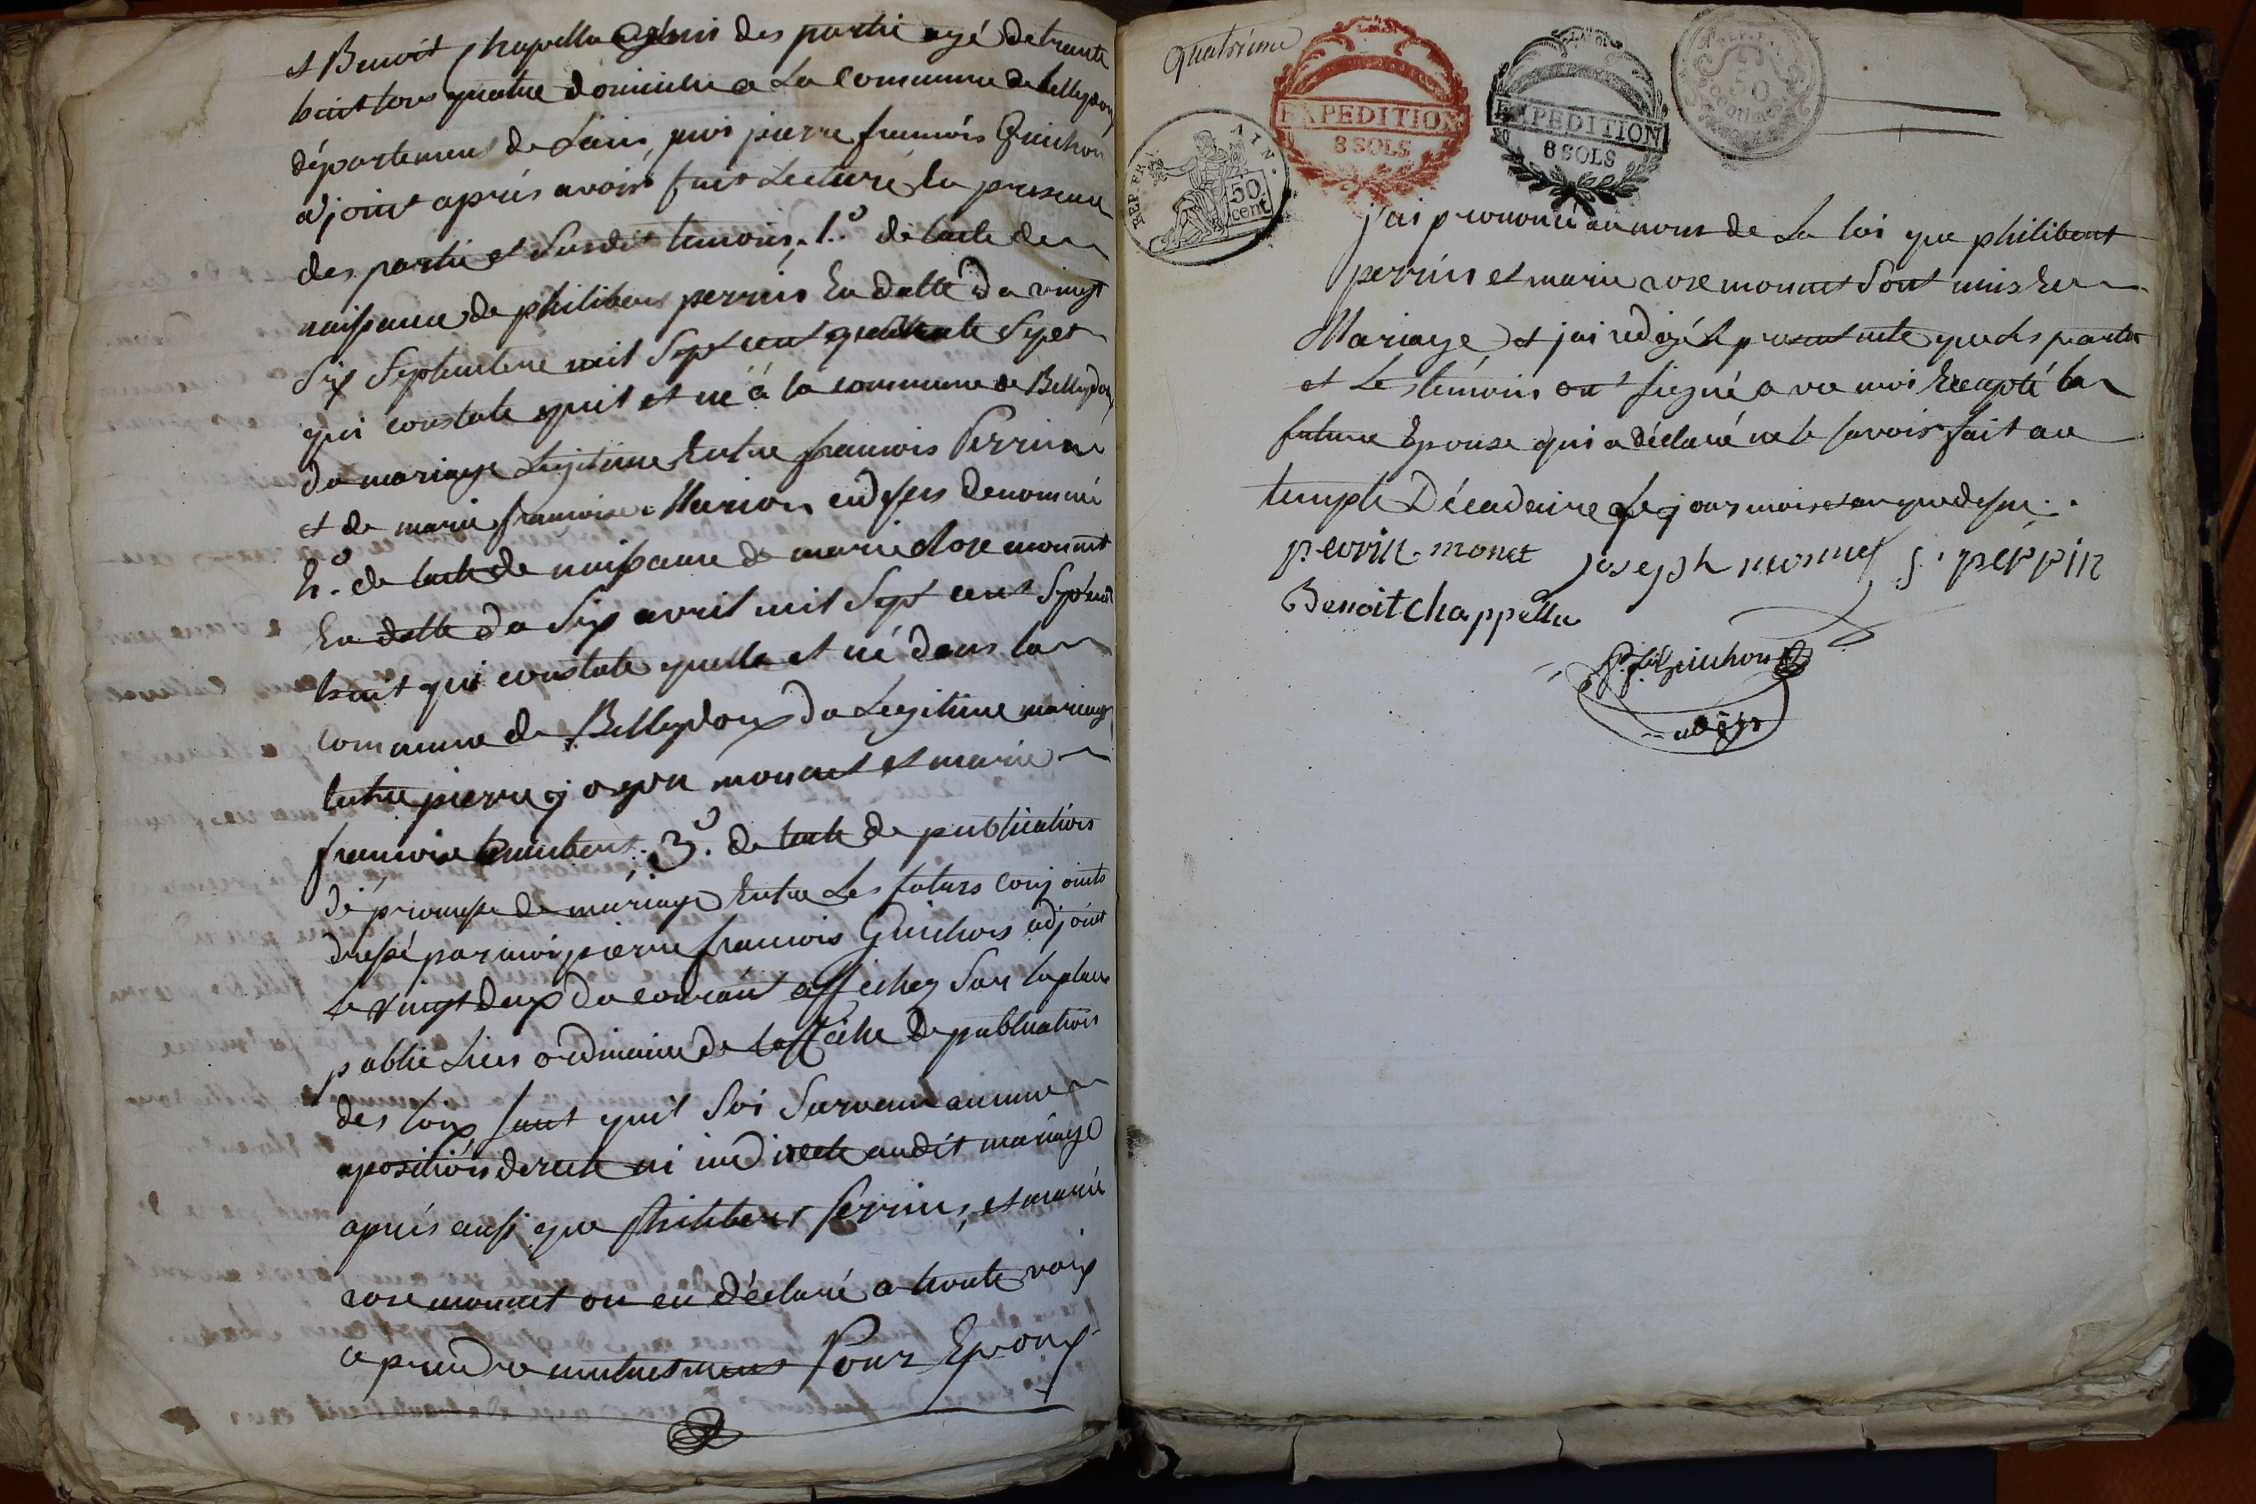 et Benoit Chapella des partie agé de trante
huit tous quatre domicilie a La Commune de bellydoux
département de Lain, moi pierre francois Guichon
adjoint aprés avoir fait Lecture En presence
des partie et Susdit temoins, 1.º de lacte de
naissance de philibert perrin En datte du vingt
Six Septembre mil Sept cent Sept
qui constate quil et né à la commune de Bellydoux
du mariage Legitime Entre francois Perrin
et de marie francoise Marion denommé
2.º de lacte de naissance de marie Rose monnet
En datte du Six avril mil Sept cent
huit qui constate quelle et né dans la
commune de Bellydoux du Legitime mariage
Entre pierre joseph monnet et marie
francoise 3.º de lacte de publication
de promesse de mariage Entre Les futurs conjoints
dressé par moi pierre francois Guichon adjoint
Le vingt deux du courant affichez Sur la place
public Lieu ordinaire de laffiche de publication
des loix sant quil Soi Survenu aucune
oposition directe ni indirecte audit mariage
aprés ausi que philibert perrin, et marie
rose monnet on eu déclaré a haute voix
ce prendre mutuelmens Pour Epoux
quatrieme
EXPEDITION
8 SOLS
EXPEDITION
8 SOLS
50
centimes
REP. FRA. AIN.
50
cent
j'ai prononcé au nom de La loi que philibert
perrin et marie rose monnet Sont unis En
Mariage et jai redigé Le present acte que les partis
et Les témoins ont signé a vec moi Excepté la
future Epouse qui a déclaré ne le savoir fait au
temple Décadaire Le jour mois et an que desus.
perrin monet joseph monnet j. perrin
Benoit Chappella
p. f. Guichon
adjt